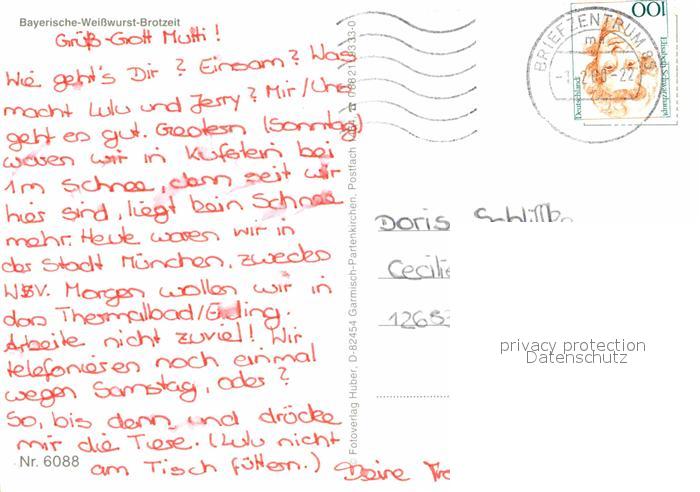 Bayerische-Weißwurst-Brotzeit
Grüß-Gott Mutti!
Wie geht's Dir? Einsam? Was
macht Lulu und Jerry? Mir/Uns
geht es gut. Gestern (Sonntag)
waren wir in Kufstein bei
1m Schnee, denn seit wir
hier sind, liegt kein Schnee
mehr. Heute waren wir in
der Stadt München, zwecks
WSV. Morgen wollen wir in
das Thermalbad/Erding.
Arbeite nicht zuviel! Wir
telefonieren noch einmal
wegen Samstag, oder?
So, bis dann und drücke
mir die Tiere. (Lulu nicht
am Tisch füttern.) Deine
Nr. 6088
© Fotoverlag Huber, D-82454 Garmisch-Partenkirchen, Postfach
BRIEFZENTRUM
100
Deutschland
Elisabeth Schwarzhaupt
Doris
Cecilie
1265
privacy protection
Datenschutz